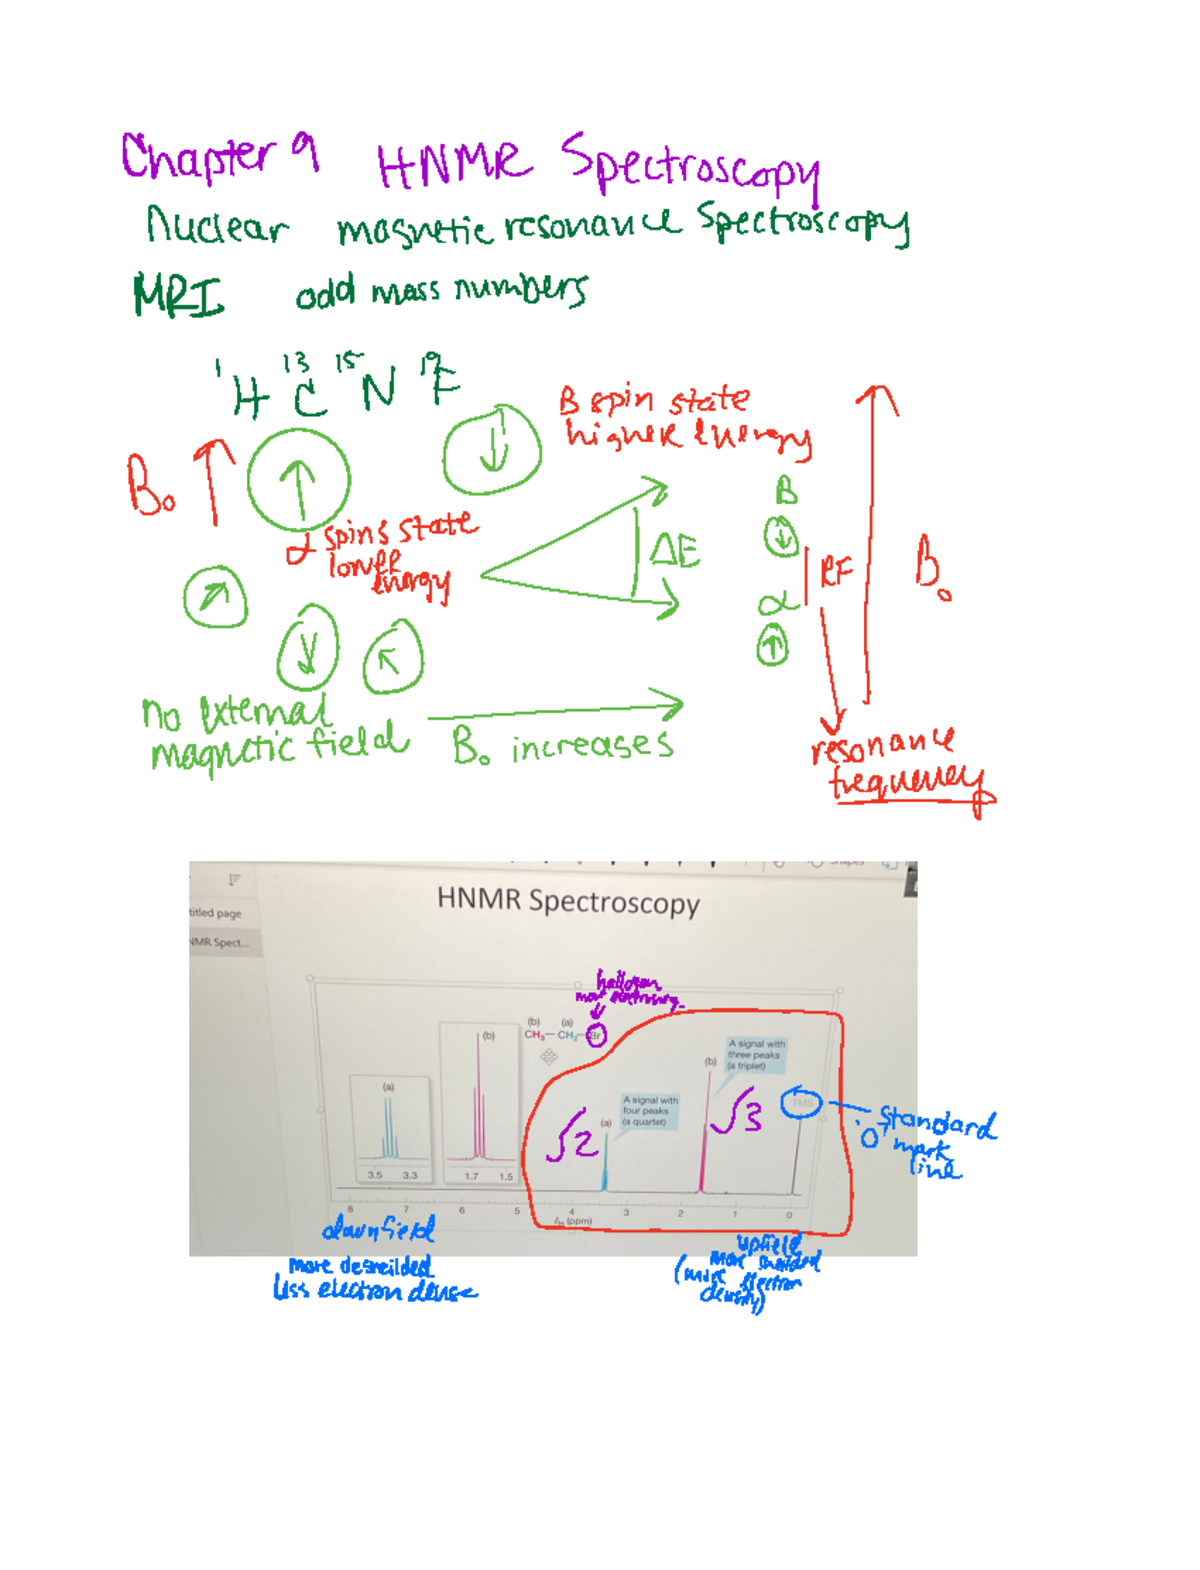 Chapter 9 HNMR Spectroscopy
Nuclear magnetic resonance Spectroscopy
MRI odd mass numbers
¹H ¹³C ¹⁵N ¹⁹F
B spin state
higher energy
B₀
α spins state
lower
energy
ΔE
B
α
RF
B₀
no external
magnetic field
B₀ increases
resonance
frequency
HNMR Spectroscopy
titled page
NMR Spect...
hallogen
more
(b) (a)
CH₃—CH₂—Br
(a)
3.5 3.3
(b)
1.7 1.5
A signal with
four peaks
(a quartet)
(a)
∫2
A signal with
three peaks
(a triplet)
(b)
∫3
TMS
Standard
"0" mark
line
8 7 6 5 4 3 2 1 0
δH (ppm)
downfield
more desheilded
less electron dense
upfield
more shielded
(more electron
density)